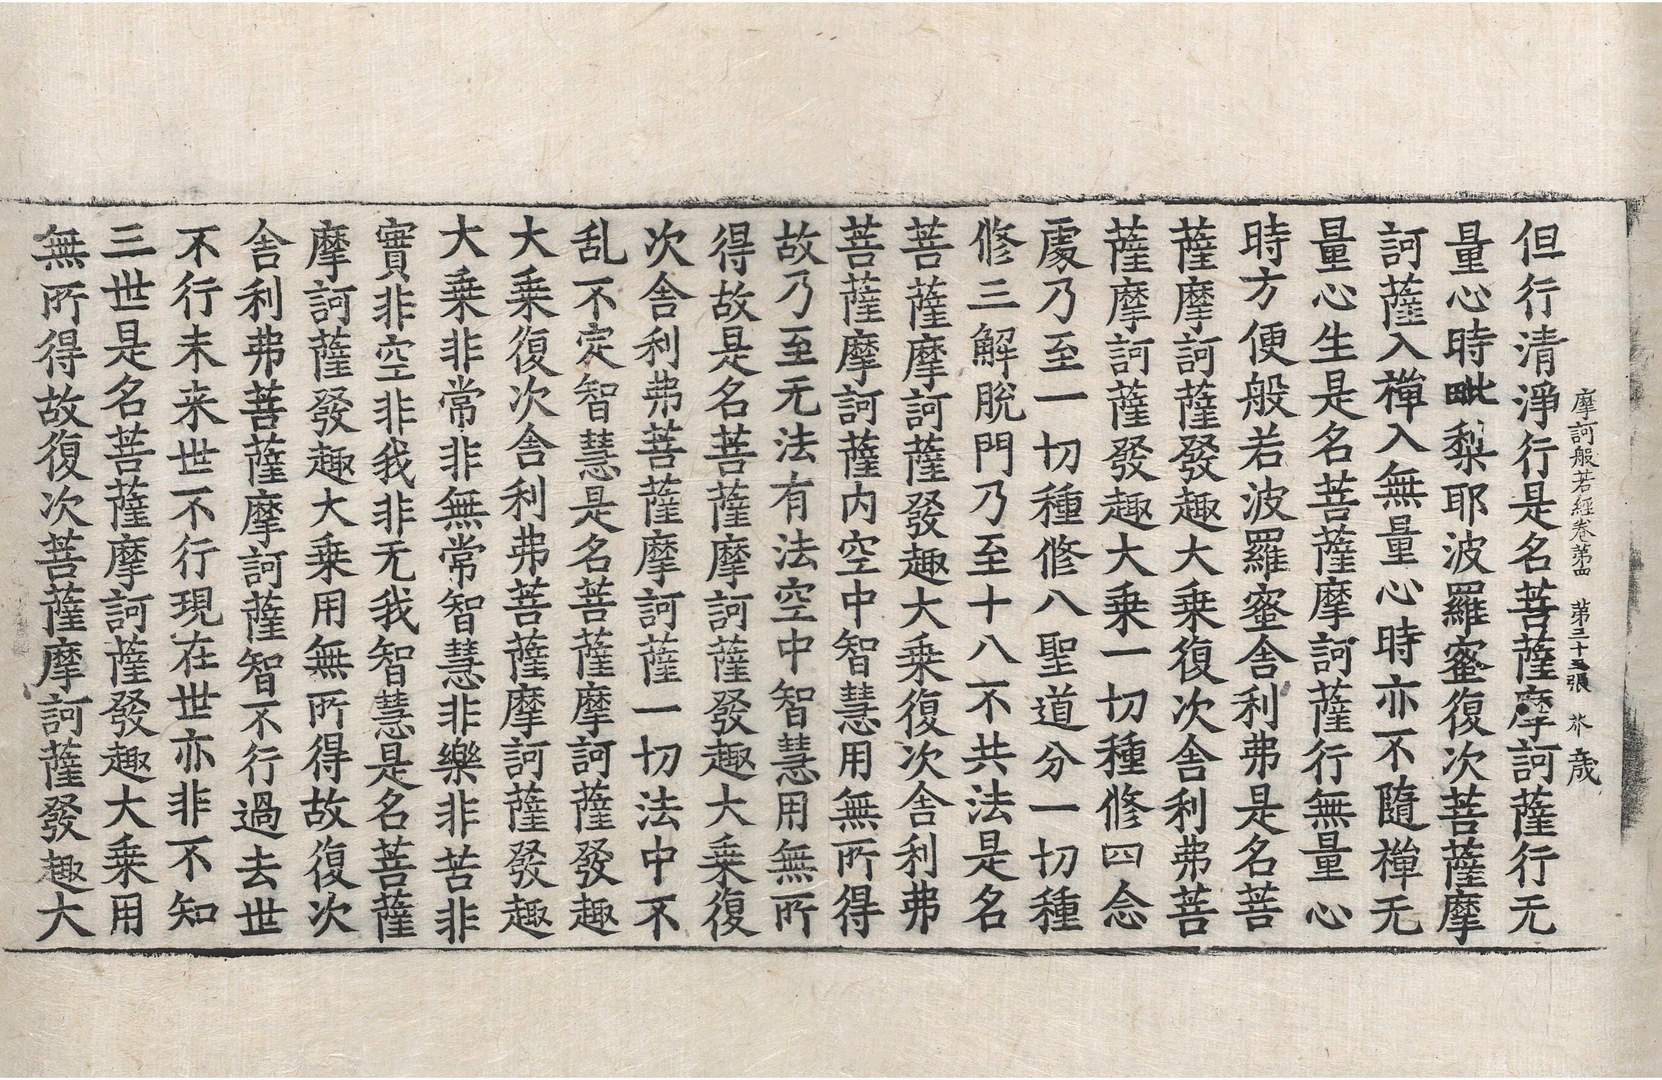 摩訶般若經卷第四 第三十五張 水 歲
但行清淨行是名菩薩摩訶薩行无
量心時毗梨耶波羅蜜復次菩薩摩
訶薩入禪入無量心時亦不隨禪无
量心生是名菩薩摩訶薩行無量心
時方便般若波羅蜜舎利弗是名菩
薩摩訶薩發趣大乗復次舎利弗菩
薩摩訶薩發趣大乗一切種修四念
處乃至一切種修八聖道分一切種
修三解脫門乃至十八不共法是名
菩薩摩訶薩發趣大乗復次舎利弗
菩薩摩訶薩内空中智慧用無所得
故乃至无法有法空中智慧用無所
得故是名菩薩摩訶薩發趣大乗復
次舎利弗菩薩摩訶薩一切法中不
乱不定智慧是名菩薩摩訶薩發趣
大乗復次舎利弗菩薩摩訶薩發趣
大乗非常非無常智慧非樂非苦非
實非空非我非无我智慧是名菩薩
摩訶薩發趣大乗用無所得故復次
舎利弗菩薩摩訶薩智不行過去世
不行未来世不行現在世亦非不知
三世是名菩薩摩訶薩發趣大乗用
無所得故復次菩薩摩訶薩發趣大